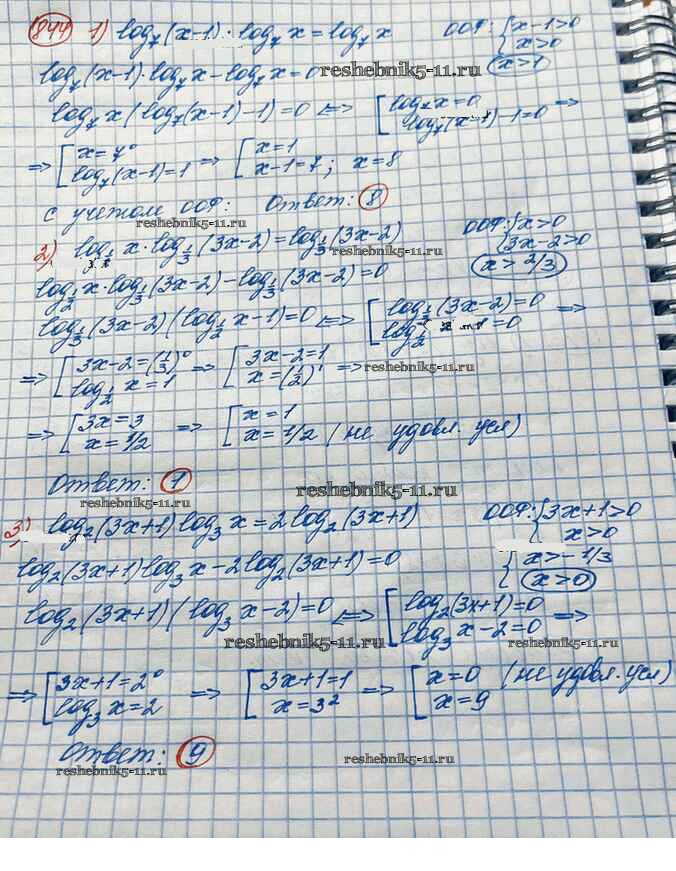 844 1) log₇(x-1)·log₇x = log₇x ООФ: { x-1>0
x>0
log₇(x-1)·log₇x - log₇x = 0 reshebnik5-11.ru x>1
log₇x(log₇(x-1)-1)=0 <=> [ log₇x=0
log₇(x-1)-1=0 =>
=> [ x=7⁰
log₇(x-1)=1 => [ x=1
x-1=7; x=8
с учетом ООФ: Ответ: 8
reshebnik5-11.ru
2) x·log_{1/3}(3x-2)=log_{1/3}(3x-2) ООФ: { x>0
3x-2>0
x>2/3
log_{1/2}x·log_{1/3}(3x-2)-log_{1/3}(3x-2)=0
log_{1/3}(3x-2)(log_{1/2}x-1)=0 <=> [ log_{1/3}(3x-2)=0
log_{1/2} =0 =>
=> [ 3x-2=(1/3)⁰
log_{1/2}x=1 => [ 3x-2=1
x=(1/2)¹ => reshebnik5-11.ru
=> [ 3x=3
x=1/2 => [ x=1
x=1/2 (не удовл. усл)
Ответ: 1
reshebnik5-11.ru reshebnik5-11.ru
3) log₂(3x+1)log₃x=2log₂(3x+1) ООФ: { 3x+1>0
x>0
log₂(3x+1)log₃x-2log₂(3x+1)=0 { x>-1/3
x>0
log₂(3x+1)(log₃x-2)=0 <=> [ log₂(3x+1)=0
log₃x-2=0 =>
reshebnik5-11.ru
=> [ 3x+1=2⁰
log₃x=2 => [ 3x+1=1
x=3² => [ x=0 (не удовл. усл)
x=9
Ответ: 9
reshebnik5-11.ru reshebnik5-11.ru